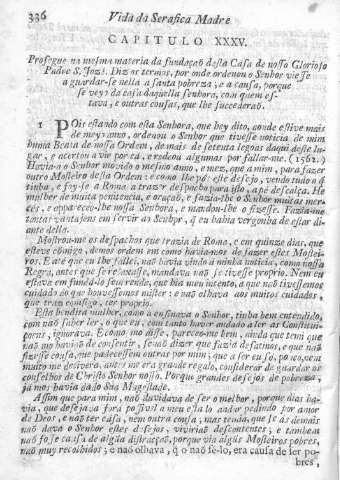 336 Vida da Serafica Madre
CAPITULO XXXV.
Prosegue na mesma materia da fundaçaõ desta Casa de nosso Glorioso
Padre S. Joze. Diz os termos, por onde ordenou o Senhor viesse
a guardar-se nella a santa pobreza; e a causa, porque
se veyo da casa daquella senhora, com quem es-
tava, e outras cousas, que lhe succederaõ.
1 POis estando com esta Senhora, que hey dito, onde estive mais
de meyo anno, ordenou o Senhor que tivesse noticia de mim
huma Beata de nossa Ordem, de mais de setenta legoas daqui deste lu-
gar, e acertou a vir por cá, e rodeou algumas por fallar-me. (1562.)
Havia-o o Senhor movido o mesmo anno, e mez, que a mim, para fazer
outro Mosteiro desta Ordem: e como lhe poz este desejo, vendo tudo o que
tinha, e foy-se a Roma a trazer despacho para isso, a pé descalça. He
mulher de muita penitencia, e oraçaõ, e fazia-lhe o Senhor muitas mer-
cés, e appareceu-lhe nossa Senhora, e mandou-lhe o fizesse. Fazia-me
tantas vantajens em servir ao Senhor, q̃ eu havia vergonha de estar di-
ante della.
Mostrou-me os despachos que trazia de Roma, e em quinze dias, que
esteve comigo, demos ordem em como havia-mos de fazer estes Mostei-
ros. E até que eu lhe fallei, naõ havia vindo a minha noticia, como nossa
Regra, antes que se relaxasse, mandava naõ se tivesse proprio. Nem eu
estava em fundá-lo sem renda, que hia meu intento, a que naõ tivessemos
cuidado do que houvessemos mister: e naõ olhava aos muitos cuidados,
que traz comsigo, ter proprio.
Esta bendita mulher, como a ensinava o Senhor, tinha bem entendido,
com naõ saber ler, o que eu, com tanto haver andado a ler as Constitui-
çoens, ignorava. E como mo disse, pareceo-me bem, ainda que temi que
naõ mo haviaõ de consentir, senaõ dizer que fazia desatinos, e que naõ
fizesse cousa, que padecessem outras por mim; que a ser eu só, pouco, nem
muito me detivera, antes me era grande regalo, considerar de guardar os
conselhos de Christo Senhor nosso. Porque grandes desejos de pobreza,
já mos havia dado Sua Magestade.
Assim que para mim, naõ duvidava de ser o melhor, porque dias ha-
via, que desejava fora possivel a meu estado andar pedindo por amor
de Deos, e naõ ter casa, nem outra cousa; mas temia, que se ás demais
naõ dava o Senhor estes desejos, viviriaõ descontentes; e tambem
naõ fosse causa de algũa distracçaõ, porque via algũs Mosteiros pobres,
naõ muy recolhidos; e naõ olhava, q̃ o naõ sê-lo, era causa de ser po-
bres,